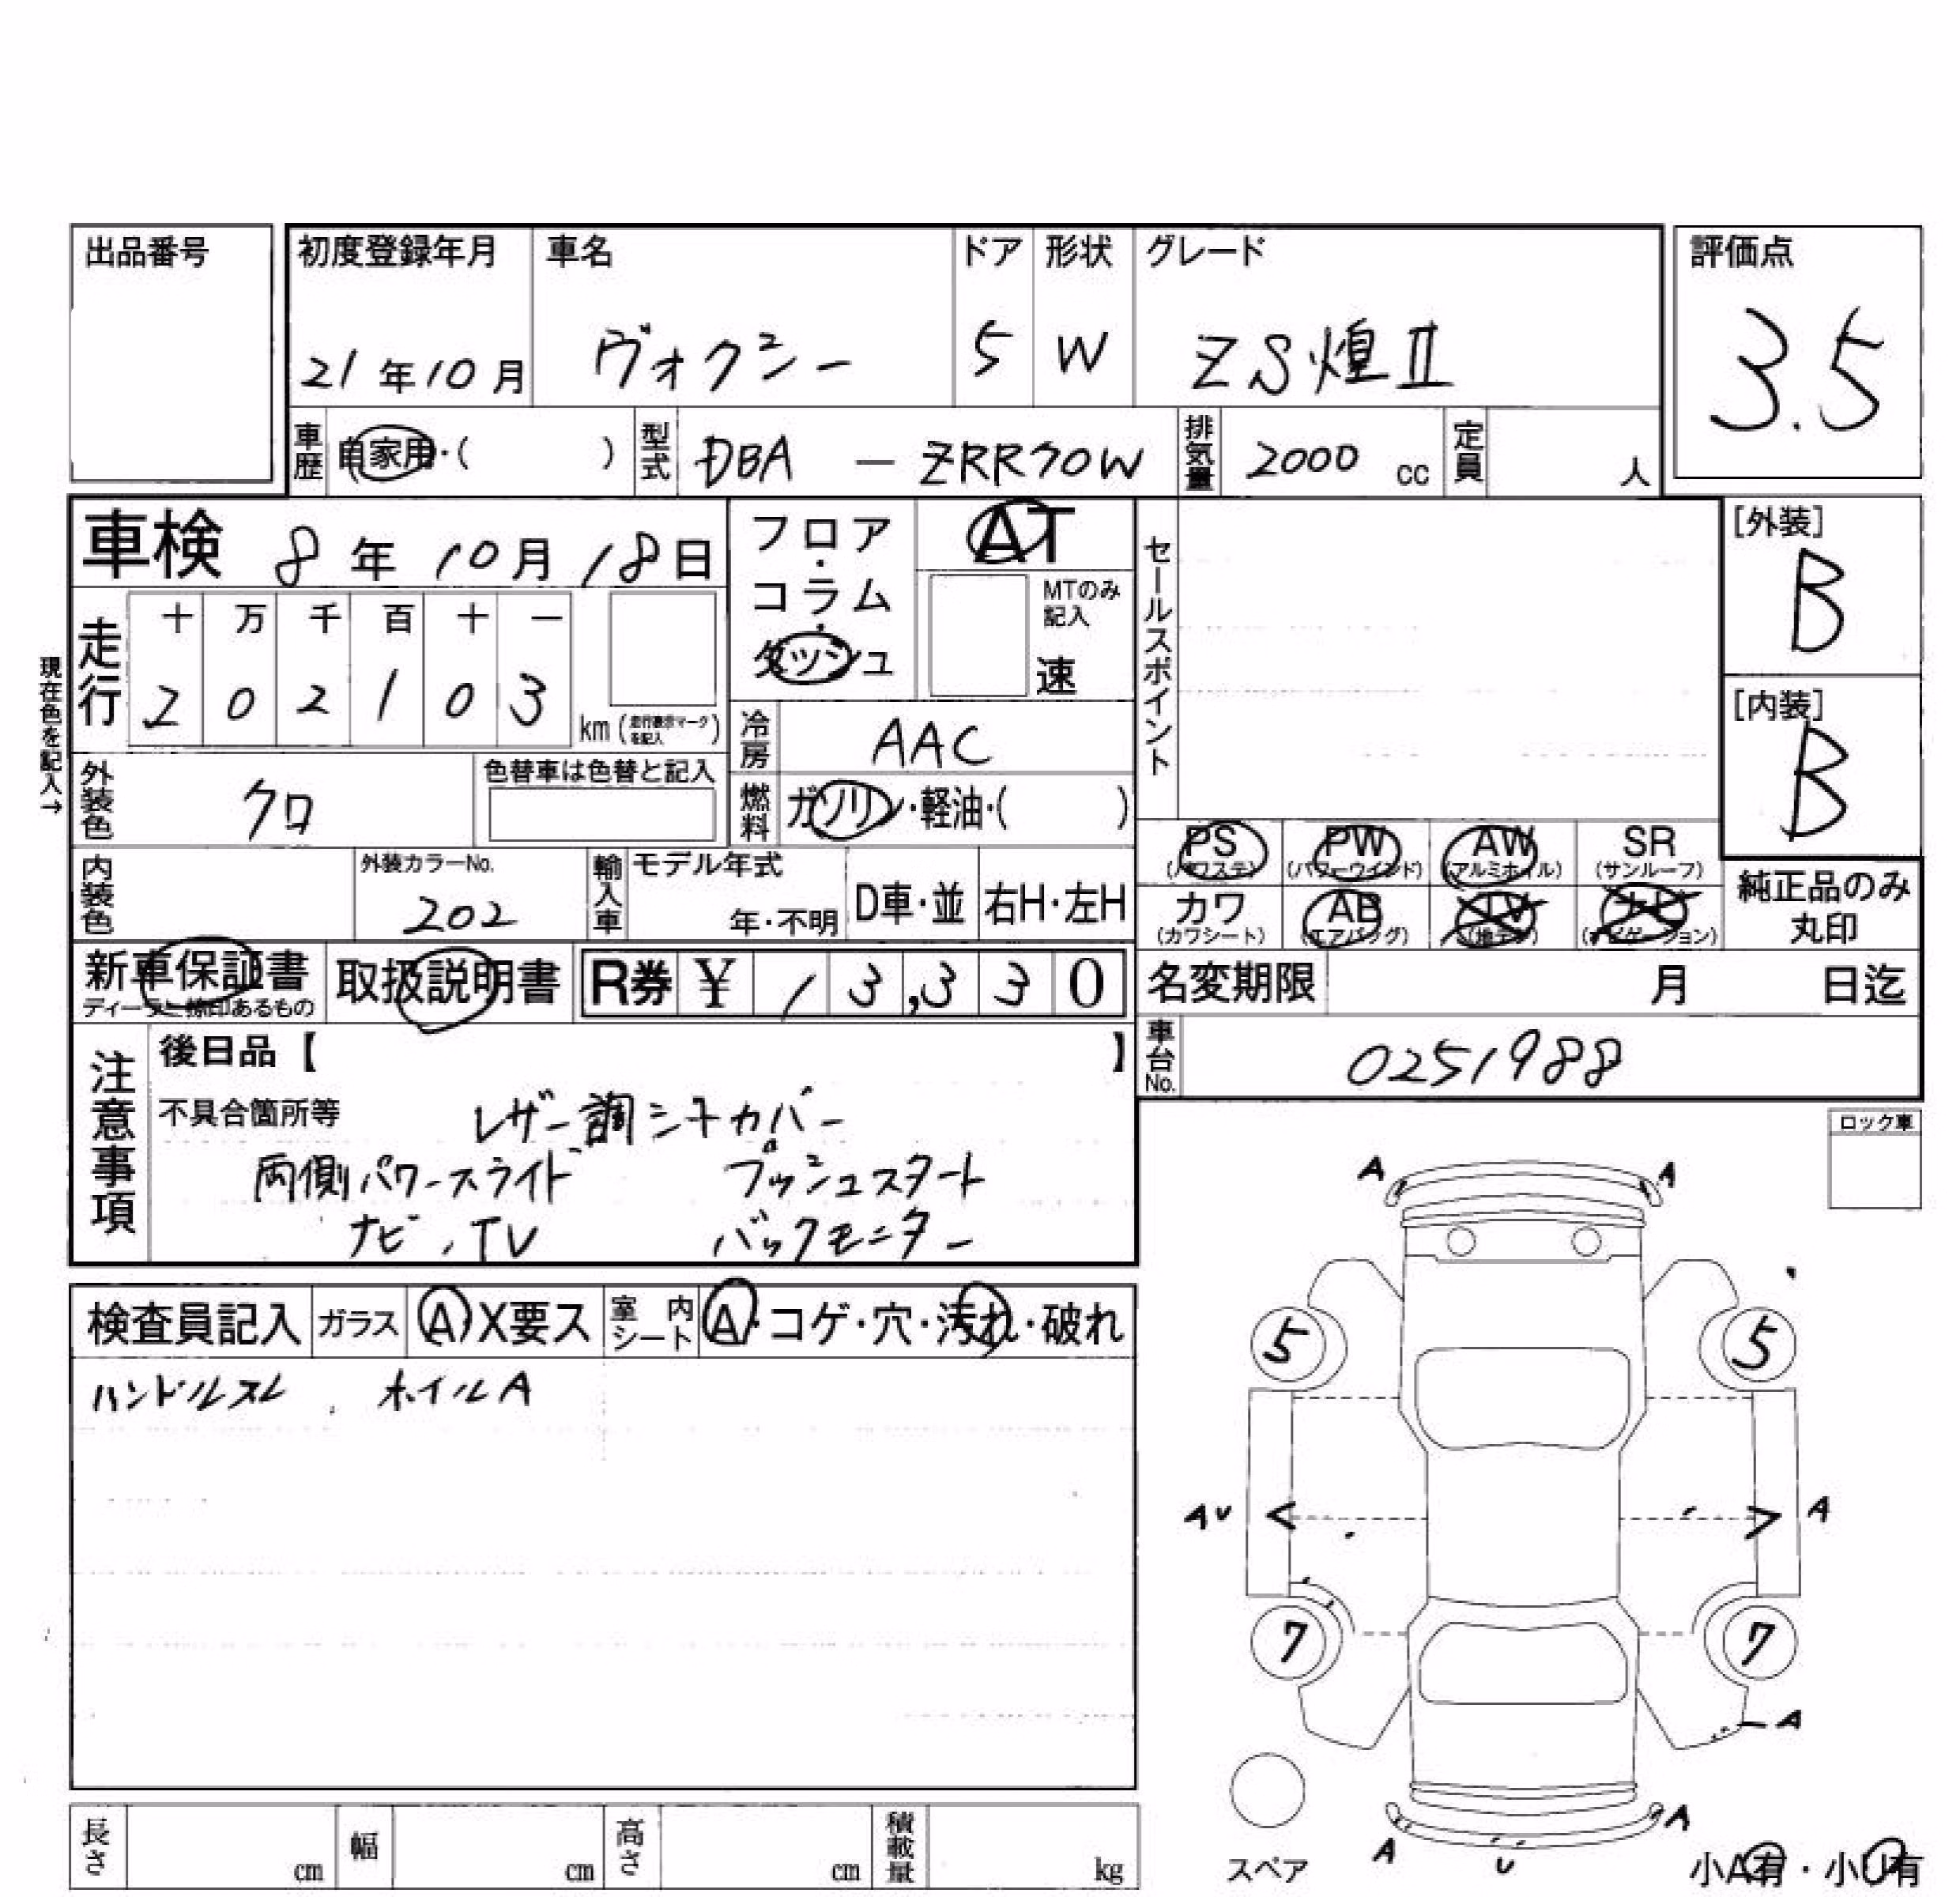 出品番号
初度登録年月 車名 ドア 形状 グレード 評価点
21年10月 ヴォクシー 5 W ZS煌Ⅱ 3.5
車歴 自家用・( ) 型式 DBA - ZRR70W 排気量 2000 cc 定員 人
車検 8年10月18日
フロア・コラム・ダッシュ
AT
MTのみ記入
速
セールスポイント
[外装]
B
[内装]
B
現在色を記入→
走行 十 万 千 百 十 一
2 0 2 1 0 3 km (走行表示マークを記入)
冷房 AAC
外装色 クロ 色替車は色替と記入
燃料 ガソリン・軽油・( )
PS (パワステ) PW (パワーウインド) AW (アルミホイル) SR (サンルーフ)
カワ (カワシート) AB (エアバッグ) TV (地デジ) ナビ (ナビゲーション)
純正品のみ
丸印
内装色 外装カラーNo. 202 輸入車 モデル年式 年・不明 D車・並 右H・左H
新車保証書 取扱説明書 R券 ¥ 13,330
ディーラー捺印あるもの
名変期限 月 日迄
車台No. 0251988
注意事項 後日品【 】
不具合箇所等 レザー調シートカバー
両側パワースライド プッシュスタート
ナビ、TV バックモニター
ロック車
検査員記入 ガラス A X要ス 室内シート A・コゲ・穴・汚れ・破れ
ハンドルスレ、ホイルA
A A
5 5
AU < > A
7 7
A
A U A
スペア
小A有・小U有
長さ cm 幅 cm 高さ cm 積載量 kg